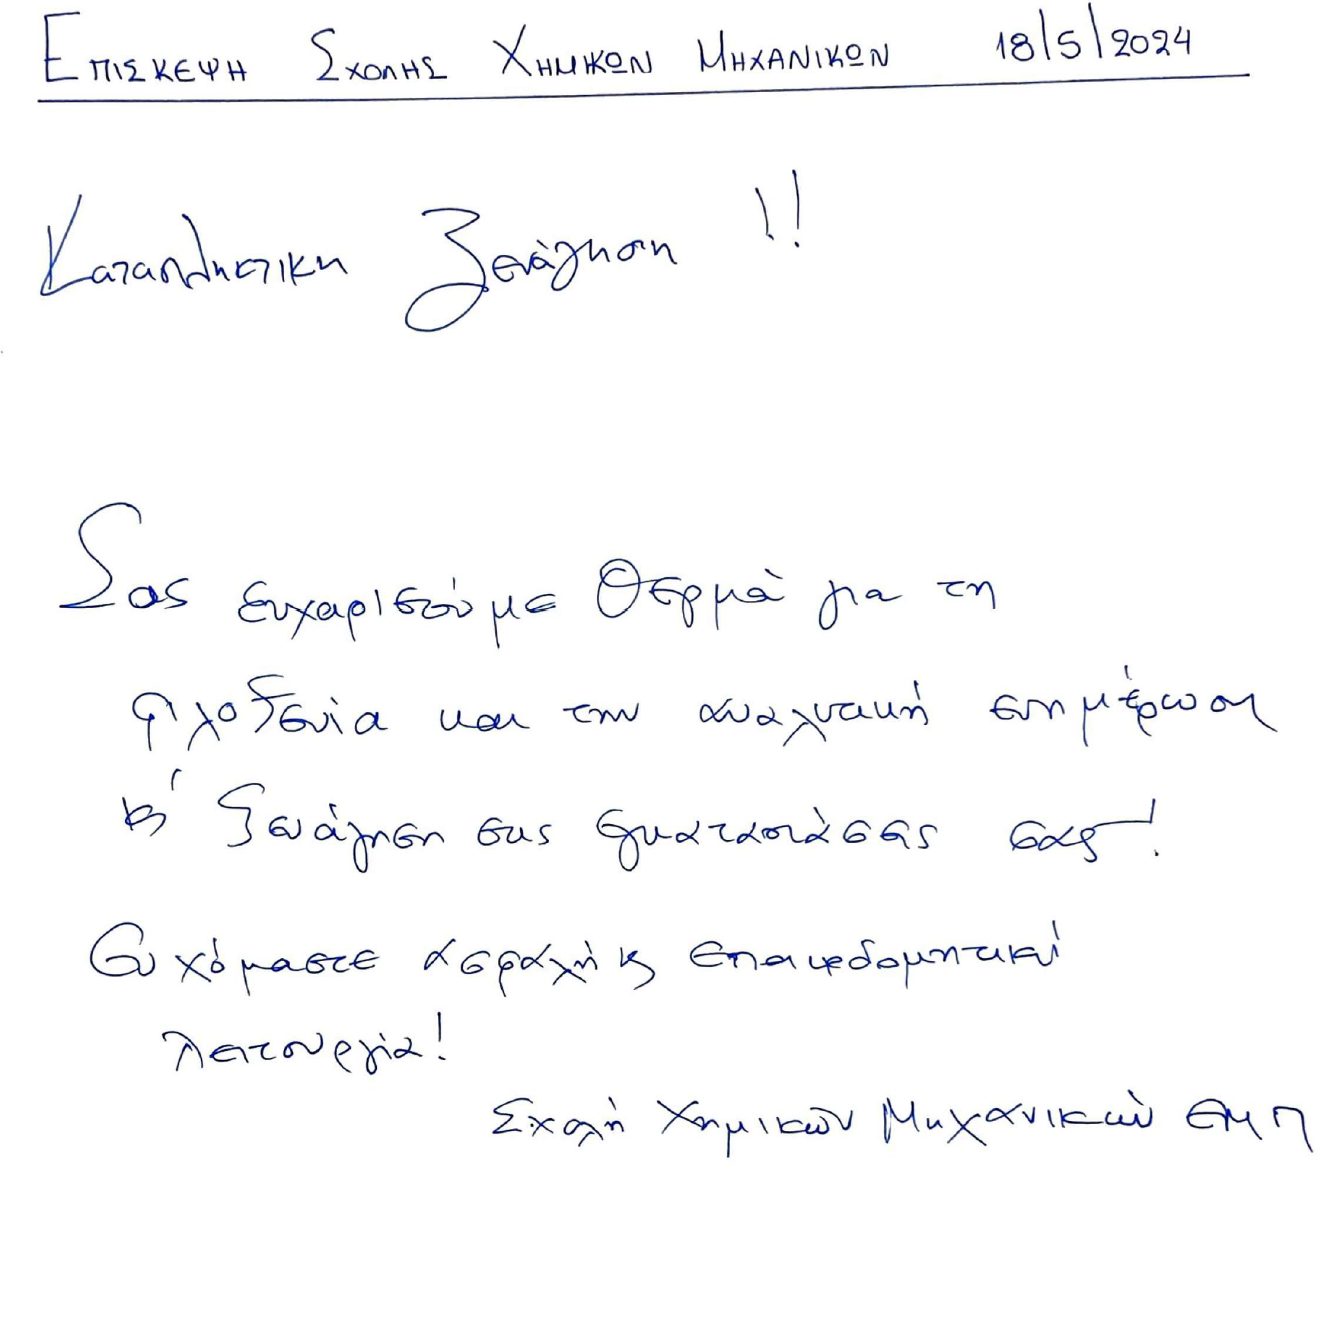 ΕΠΙΣΚΕΨΗ ΣΧΟΛΗΣ ΧΗΜΙΚΩΝ ΜΗΧΑΝΙΚΩΝ 18/5/2024
Καταπληκτικη Ξενάγηση !!
Σας ευχαριστούμε θερμά για τη
φιλοξενία και την αναλυτική ενημέρωση
κ' ξενάγηση στις εγκαταστάσεις σας!
Ευχόμαστε ασφαλή κ εποικοδομητική
λειτουργία!
Σχολή Χημικών Μηχανικών ΕΜΠ